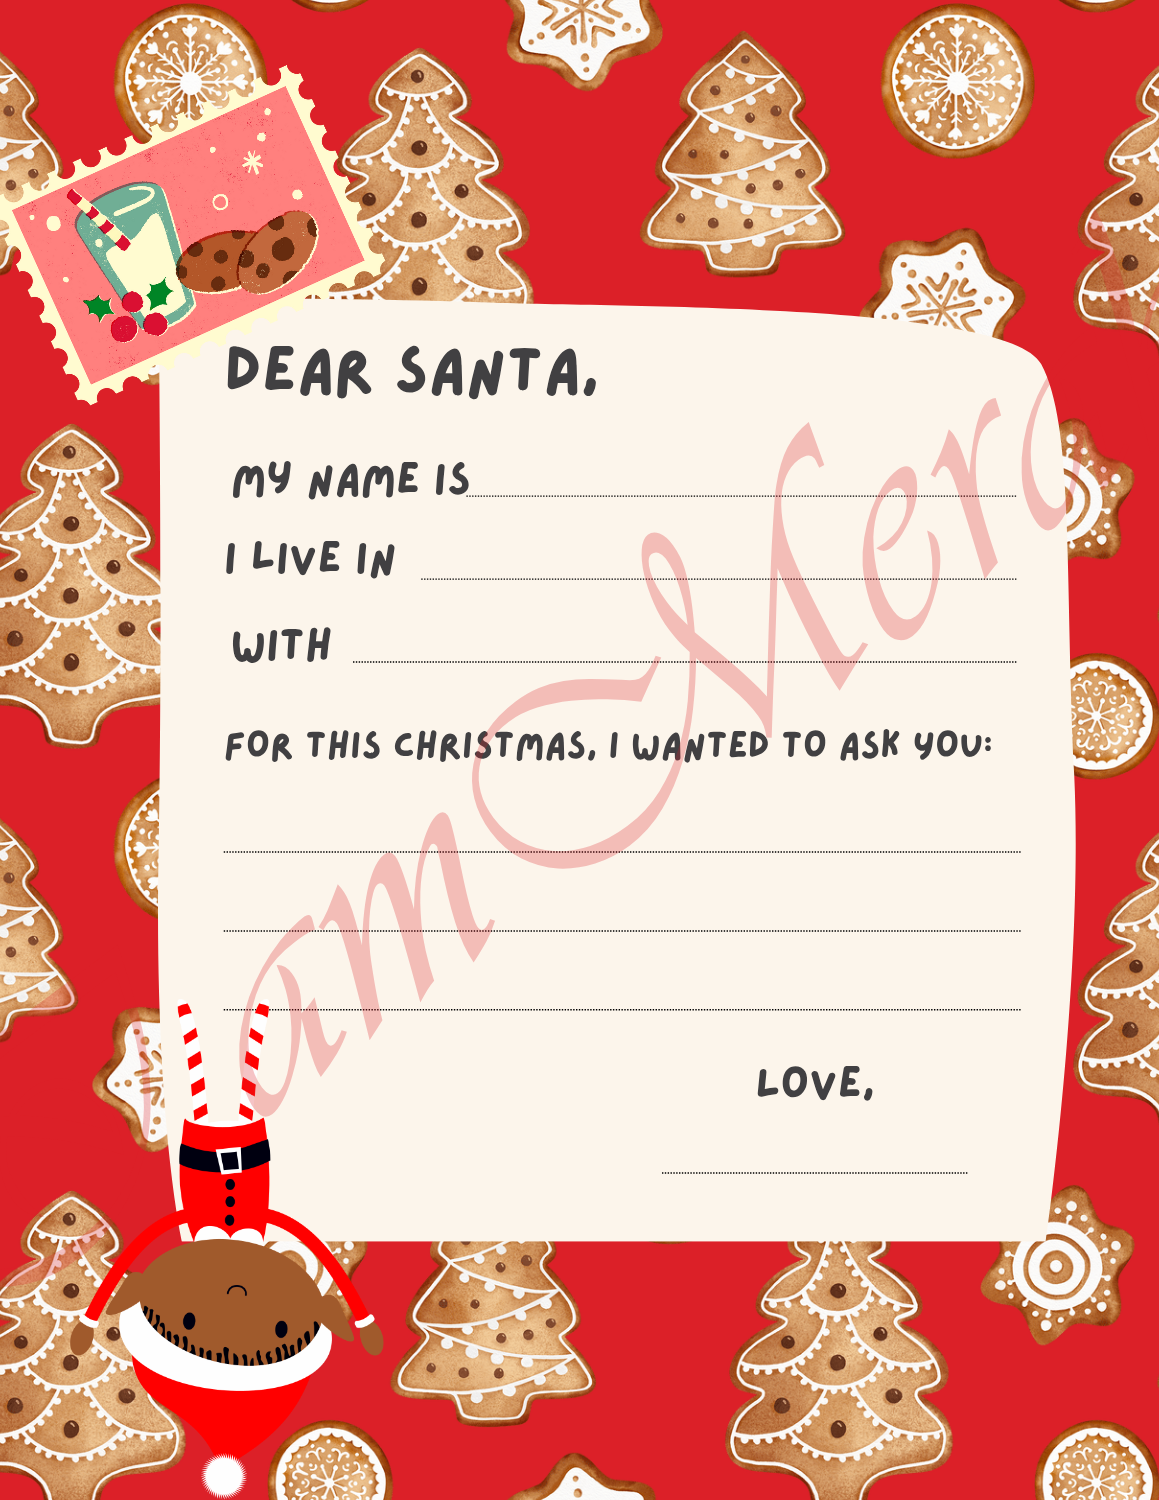 DEAR SANTA,
MY NAME IS
I LIVE IN
WITH
FOR THIS CHRISTMAS, I WANTED TO ASK YOU:
LOVE,
am Merc